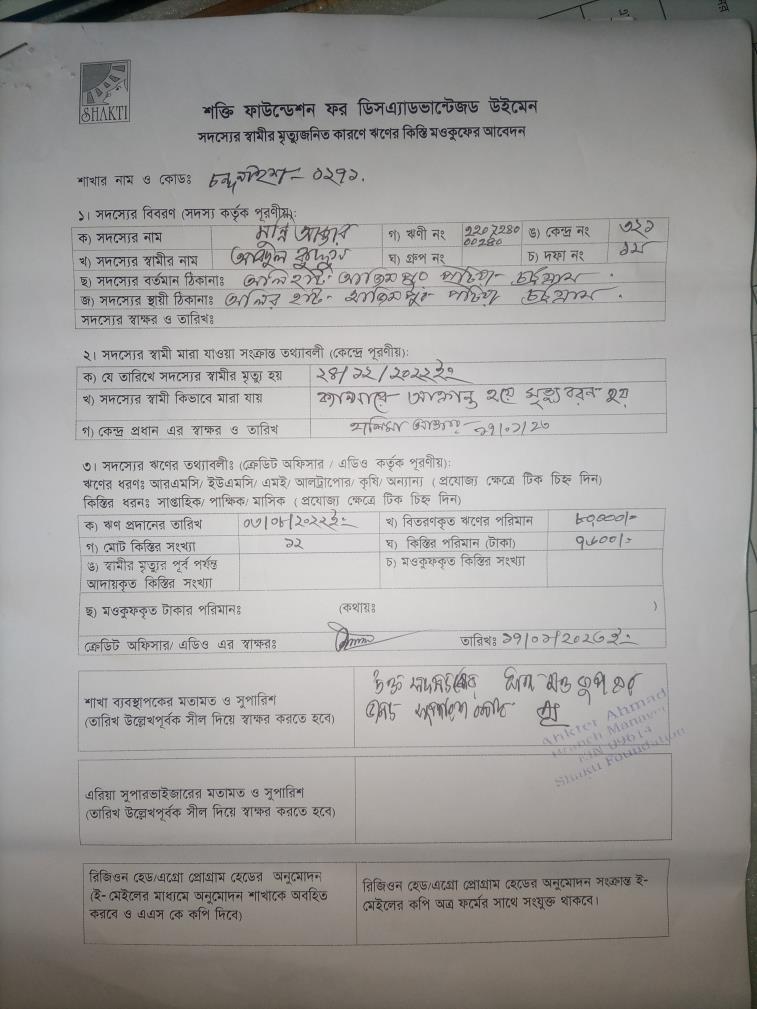 SHAKTI
শক্তি ফাউন্ডেশন ফর ডিসএ্যাডভান্টেজড উইমেন
সদস্যের স্বামীর মৃত্যুজনিত কারণে ঋণের কিস্তি মওকুফের আবেদন
শাখার নাম ও কোডঃ - ০২৭১.
১। সদস্যের বিবরণ (সদস্য কর্তৃক পূরণীয়):
ক) সদস্যের নাম মুন্নি আক্তার গ) ঋণী নং 22072800 00280 ঙ) কেন্দ্র নং ৩২১
খ) সদস্যের স্বামীর নাম আবদুল কুদ্দুস ঘ) গ্রুপ নং চ) দফা নং ১ম
ছ) সদস্যের বর্তমান ঠিকানাঃ পটিয়া- চট্টগ্রাম.
জ) সদস্যের স্থায়ী ঠিকানাঃ পটিয়া চট্টগ্রাম.
সদস্যের স্বাক্ষর ও তারিখঃ
২। সদস্যের স্বামী মারা যাওয়া সংক্রান্ত তথ্যাবলী (কেন্দ্রে পূরণীয়):
ক) যে তারিখে সদস্যের স্বামীর মৃত্যু হয় ২৪/১২/২০২২ইং
খ) সদস্যের স্বামী কিভাবে মারা যায় ক্যান্সারে আক্রান্ত হয়ে মৃত্যু বরন হয়
গ) কেন্দ্র প্রধান এর স্বাক্ষর ও তারিখ ১৭/০১/২৩
৩। সদস্যের ঋণের তথ্যাবলীঃ (ক্রেডিট অফিসার / এডিও কর্তৃক পূরণীয়):
ঋণের ধরণঃ আরএমসি/ ইউএমসি/ এমই/ আলট্রাপোর/ কৃষি/ অন্যান্য ( প্রযোজ্য ক্ষেত্রে টিক চিহ্ন দিন)
কিস্তির ধরনঃ সাপ্তাহিক/ পাক্ষিক/ মাসিক ( প্রযোজ্য ক্ষেত্রে টিক চিহ্ন দিন)
ক) ঋণ প্রদানের তারিখ ০৩/০৮/২০২২ইং খ) বিতরণকৃত ঋণের পরিমান ৮০,০০০/=
গ) মোট কিস্তির সংখ্যা ১২ ঘ) কিস্তির পরিমান (টাকা) ৭৬০০/=
ঙ) স্বামীর মৃত্যুর পূর্ব পর্যন্ত চ) মওকুফকৃত কিস্তির সংখ্যা
আদায়কৃত কিস্তির সংখ্যা
ছ) মওকুফকৃত টাকার পরিমানঃ (কথায়ঃ )
ক্রেডিট অফিসার/ এডিও এর স্বাক্ষরঃ তারিখঃ ১৭/০১/২০২৩ইং
শাখা ব্যবস্থাপকের মতামত ও সুপারিশ
(তারিখ উল্লেখপূর্বক সীল দিয়ে স্বাক্ষর করতে হবে)
উক্ত
Ankter Ahmad
Branch Manager
PIN 09614
Shakti Foundation
এরিয়া সুপারভাইজারের মতামত ও সুপারিশ
(তারিখ উল্লেখপূর্বক সীল দিয়ে স্বাক্ষর করতে হবে)
রিজিওন হেড/এগ্রো প্রোগ্রাম হেডের অনুমোদন
(ই- মেইলের মাধ্যমে অনুমোদন শাখাকে অবহিত
করবে ও এএস কে কপি দিবে)
রিজিওন হেড/এগ্রো প্রোগ্রাম হেডের অনুমোদন সংক্রান্ত ই-
মেইলের কপি অত্র ফর্মের সাথে সংযুক্ত থাকবে।